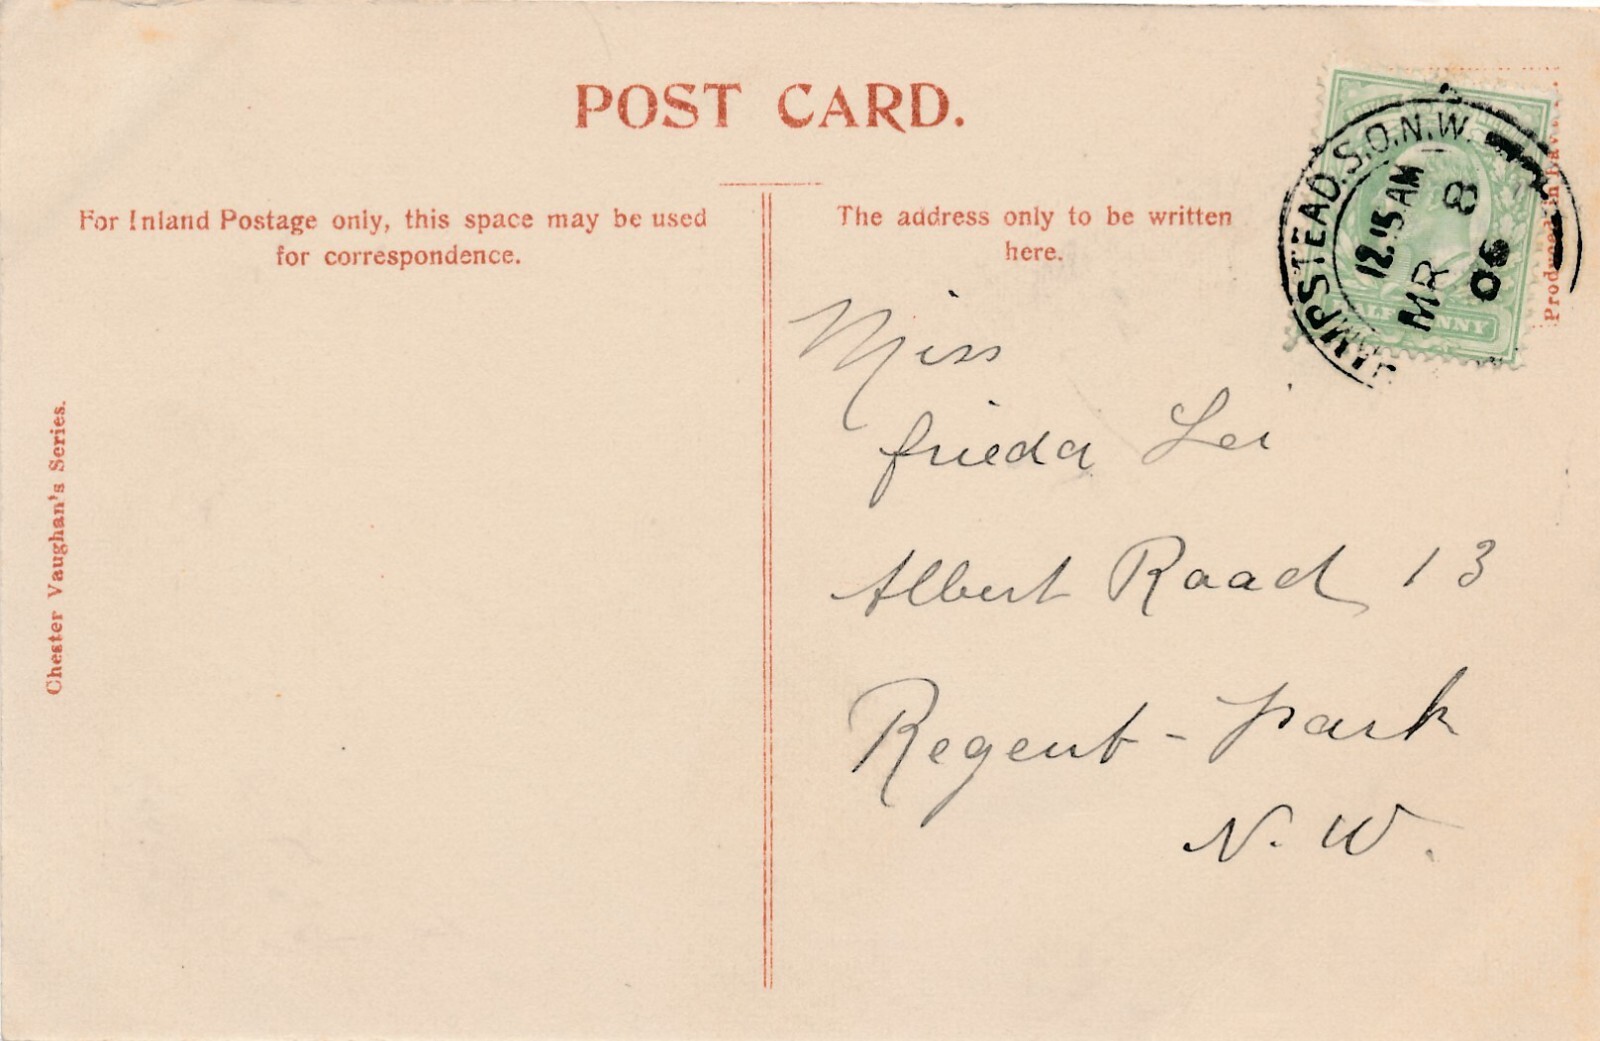 POST CARD.
For Inland Postage only, this space may be used
for correspondence.
The address only to be written
here.
Chester Vaughan's Series.
Produced in Bavaria.
HAMPSTEAD.S.O.N.W.
12.15 AM
MR 8
06
HALFPENNY
Miss
Frieda Lei
Albert Raad 13
Regent-park
N. W.